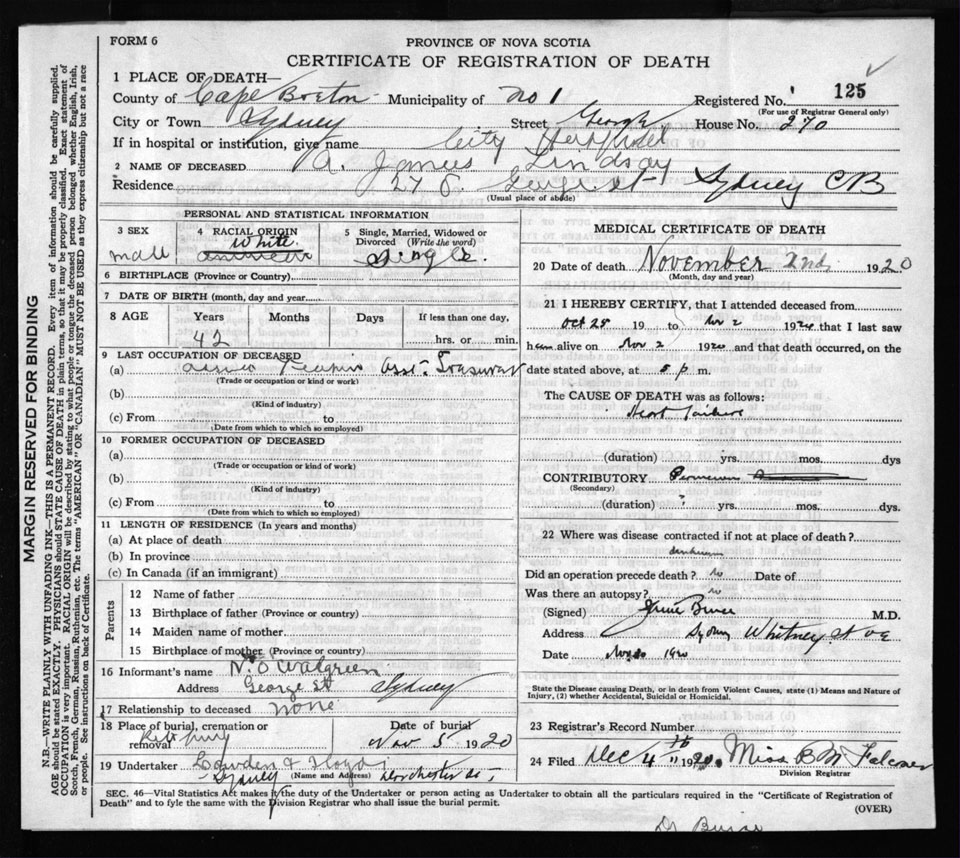 FORM 6
PROVINCE OF NOVA SCOTIA
CERTIFICATE OF REGISTRATION OF DEATH
1 PLACE OF DEATH—
County of Cape Breton Municipality of No 1 Registered No. 125
(For use of Registrar General only)
City or Town Sydney Street George House No. 270
If in hospital or institution, give name City
2 NAME OF DECEASED A. James Lindsay
Residence George St Sydney CB
(Usual place of abode)
PERSONAL AND STATISTICAL INFORMATION
3 SEX male
4 RACIAL ORIGIN White
5 Single, Married, Widowed or Divorced (Write the word) Single
6 BIRTHPLACE (Province or Country)
7 DATE OF BIRTH (month, day and year)
8 AGE Years Months Days If less than one day,
42 hrs. or min.
9 LAST OCCUPATION OF DECEASED
(a) Asst. Treasurer
(Trade or occupation or kind or work)
(b)
(Kind of industry)
(c) From to
(Date from which to which so employed)
10 FORMER OCCUPATION OF DECEASED
(a)
(Trade or occupation or kind of work)
(b)
(Kind of industry)
(c) From to
(Date from which to which so employed)
11 LENGTH OF RESIDENCE (In years and months)
(a) At place of death
(b) In province
(c) In Canada (if an immigrant)
Parents
12 Name of father
13 Birthplace of father (Province or country)
14 Maiden name of mother
15 Birthplace of mother (Province or country)
16 Informant's name
Address George St Sydney
17 Relationship to deceased None
18 Place of burial, cremation or removal
Date of burial
Nov 5 1920
19 Undertaker
Sydney (Name and Address) Dorchester St
MEDICAL CERTIFICATE OF DEATH
20 Date of death November 2nd 1920
(Month, day and year)
21 I HEREBY CERTIFY, that I attended deceased from
Oct 25 19 to Nov 2 1920 that I last saw
him alive on Nov 2 1920 and that death occurred, on the
date stated above, at 5 p m.
The CAUSE OF DEATH was as follows:
Heart Failure
(duration) yrs. mos. dys
CONTRIBUTORY
(Secondary)
(duration) yrs. mos. dys.
22 Where was disease contracted if not at place of death?
Did an operation precede death? No Date of
Was there an autopsy? No
(Signed) M.D.
Address Sydney Whitney
Date 1920
State the Disease causing Death, or in death from Violent Causes, state (1) Means and Nature of Injury, (2) whether Accidental, Suicidal or Homicidal.
23 Registrar's Record Number
24 Filed Dec 4th 1920 Miss
Division Registrar
SEC. 46—Vital Statistics Act makes it the duty of the Undertaker or person acting as Undertaker to obtain all the particulars required in the "Certificate of Registration of
Death" and to fyle the same with the Division Registrar who shall issue the burial permit.
(OVER)
MARGIN RESERVED FOR BINDING
N.B.—WRITE PLAINLY WITH UNFADING INK—THIS IS A PERMANENT RECORD. Every item of information should be carefully supplied.
AGE should be stated EXACTLY. PHYSICIANS should STATE CAUSE OF DEATH in plain terms, so that it may be properly classified. Exact statement of
OCCUPATION is very important. RACIAL ORIGIN will be described by stating to what people or tongue the deceased person belonged, whether English, Irish,
Scotch, French, German, Russian, Ruthenian, etc. The terms "AMERICAN" OR "CANADIAN" MUST NOT BE USED as they express citizenship but not a race
or people. See instructions on back of Certificate.